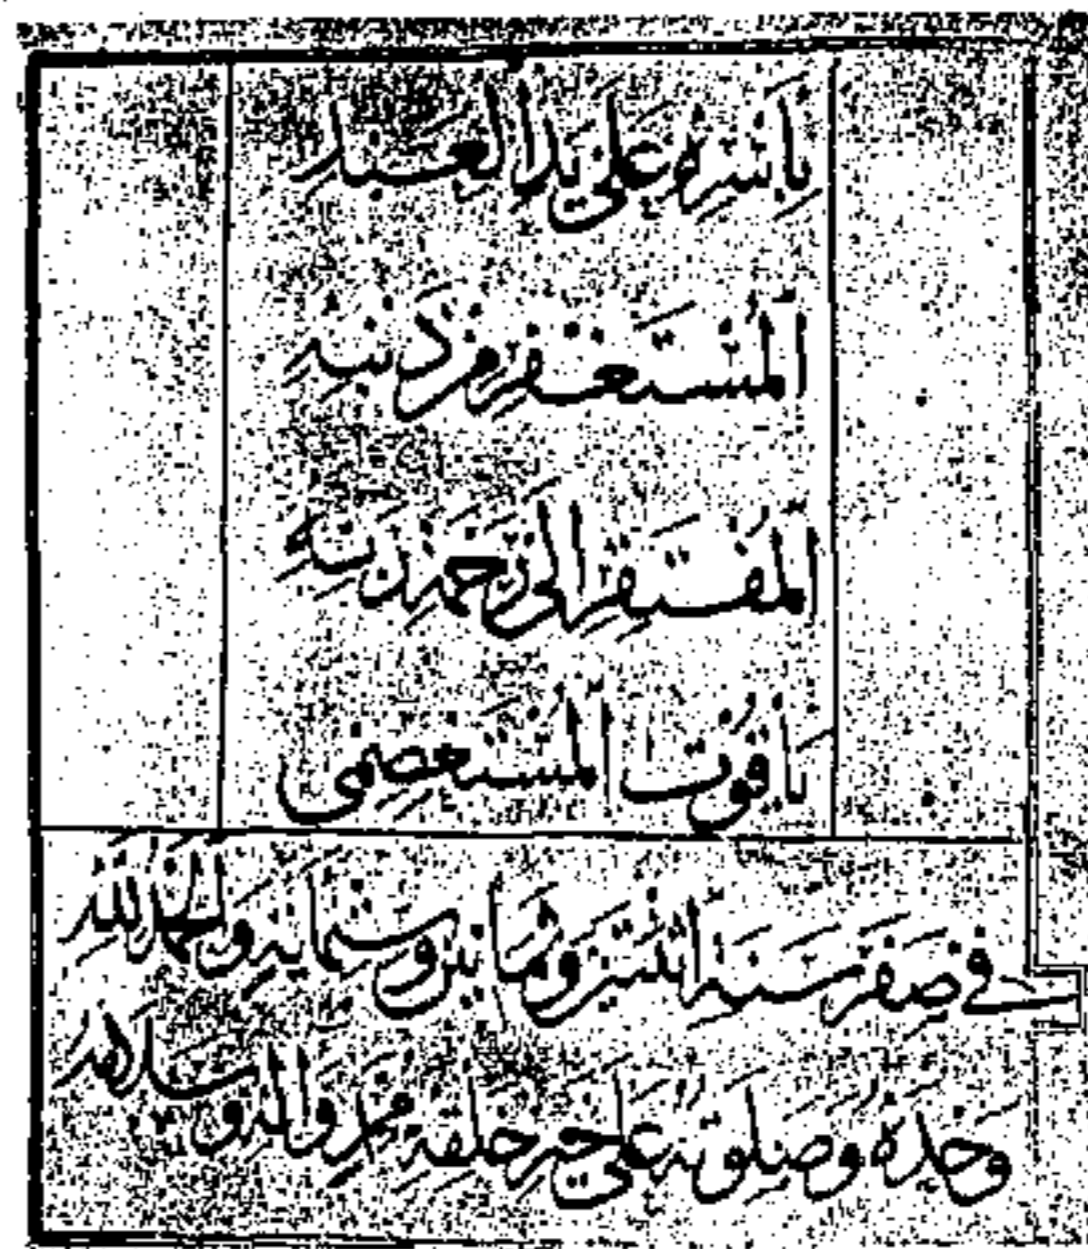 بأسره على يد العبد
المستغفر من ذنبه
المفتقر إلى رحمة ربه
ياقوت المستعصمي
في صفر سنة اثنتين وثمانين وستمائة والحمد لله
وحده وصلوته على خير خلقه محمد وآله وسلامه